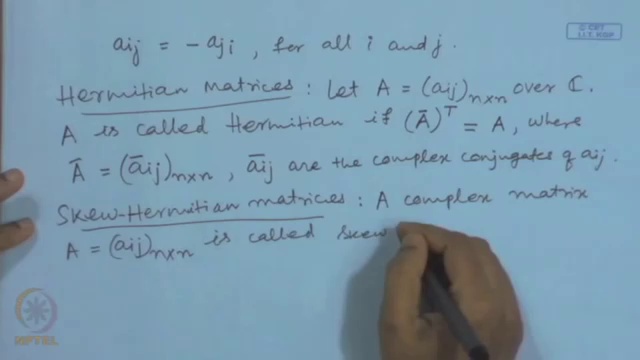 aij = -aji, for all i and j.
© CET
I.I.T. KGP
Hermitian Matrices : Let A = (aij)n×n over ℂ.
A is called Hermitian if (Ā)ᵀ = A, where
Ā = (āij)n×n, āij are the complex conjugates of aij.
Skew-Hermitian matrices : A complex matrix
A = (aij)n×n is called skew
NPTEL